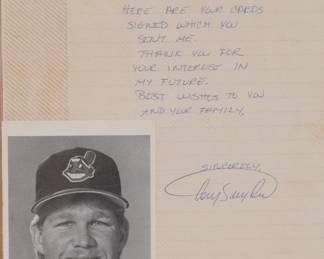 HERE ARE YOUR CARDS
SIGNED WHICH YOU
SENT ME.
THANK YOU FOR
YOUR INTEREST IN
MY FUTURE.
BEST WISHES TO YOU
AND YOUR FAMILY,
SINCERELY,
Cory Snyder